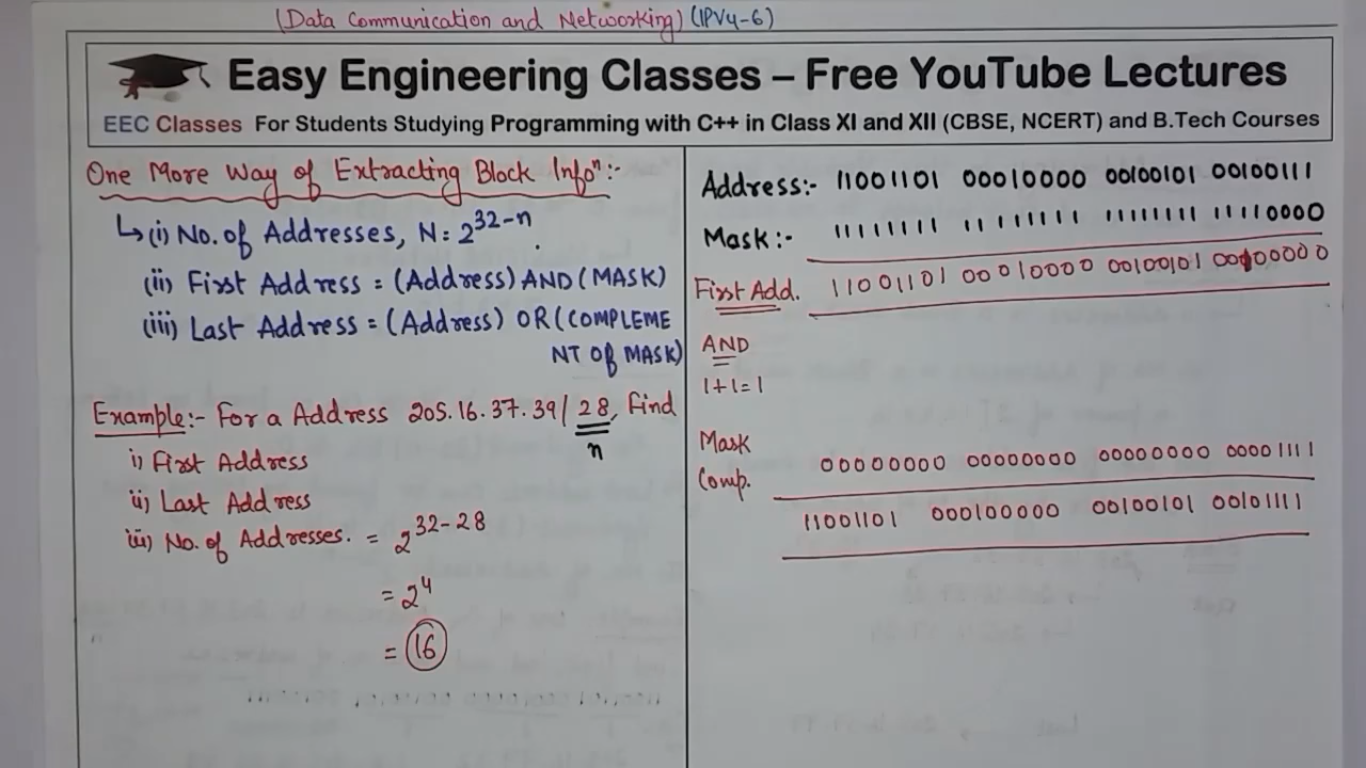 (Data Communication and Networking) (IPV4-6)
Easy Engineering Classes – Free YouTube Lectures
EEC Classes For Students Studying Programming with C++ in Class XI and XII (CBSE, NCERT) and B.Tech Courses
One More Way of Extracting Block Infoⁿ:-
↳ (i) No. of Addresses, N = 2^32-n.
(ii) First Address = (Address) AND (MASK)
(iii) Last Address = (Address) OR (COMPLEME
NT Of MASK)
Example:- For a Address 205.16.37.39/28, Find
n
i) First Address
ii) Last Address
iii) No. of Addresses. = 2^32-28
= 2^4
= 16
Address:- 11001101 00010000 00100101 00100111
Mask:- 11111111 11111111 11111111 11110000
First Add. 11001101 00010000 00100101 00100000
AND
1+1=1
Mask
Comp. 00000000 00000000 00000000 00001111
11001101 000100000 00100101 00101111